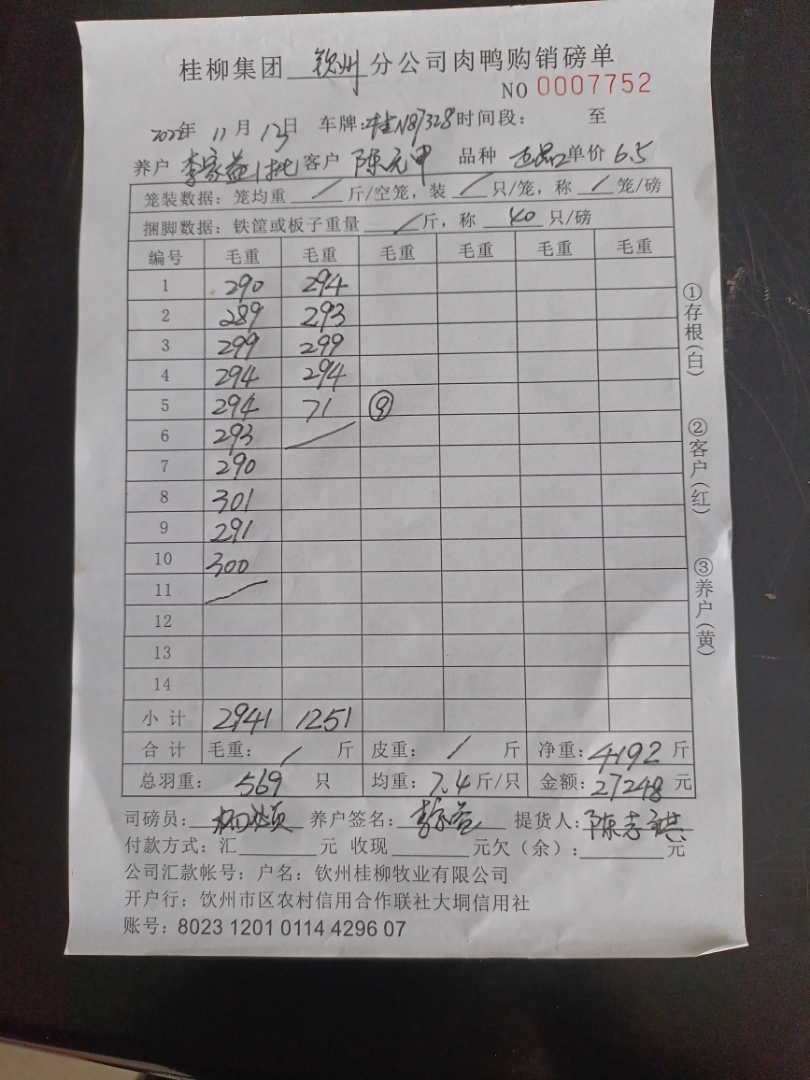 桂柳集团 钦州 分公司肉鸭购销磅单
NO 0007752
2022年 11月 13日 车牌:桂N87328 时间段: 至
养户 李家益1批 客户 陈元甲 品种 正品 单价 6.5
笼装数据: 笼均重 / 斤/空笼, 装 / 只/笼, 称 / 笼/磅
捆脚数据: 铁筐或板子重量 / 斤, 称 40 只/磅
编号 毛重 毛重 毛重 毛重 毛重 毛重
1 290 294
2 289 293
3 299 299
4 294 294
5 294 71 ⑨
6 293 /
7 290
8 301
9 291
10 300
11 /
12
13
14
小计 2941 1251
合计 毛重: / 斤 皮重: / 斤 净重: 4192 斤
总羽重: 569 只 均重: 7.4 斤/只 金额: 27248 元
司磅员: 养户签名: 李家益 提货人: 陈志
付款方式: 汇 元 收现 元欠(余): 元
公司汇款帐号: 户名: 钦州桂柳牧业有限公司
开户行: 钦州市区农村信用合作联社大垌信用社
账号: 8023 1201 0114 4296 07
①存根(白)
②客户(红)
③养户(黄)